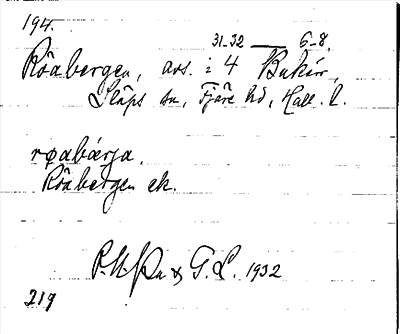 194.
31-32 — 6-8.
Röabergen, avs. i 4 Bukärr,
Släps sn, Fjäre hd, Hall. l.
røabärja.
Röabergen ek.
& G. L. 1932
219